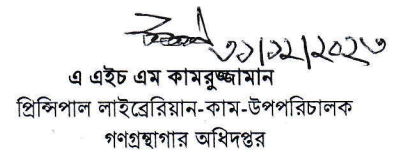 ৩১/১২/২০২৩
এ এইচ এম কামরুজ্জামান
প্রিন্সিপাল লাইব্রেরিয়ান-কাম-উপপরিচালক
গণগ্রন্থাগার অধিদপ্তর